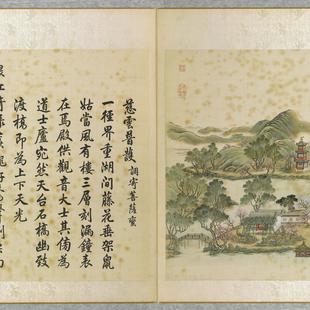 慈雲普護 調寄菩薩蠻
一徑界重湖間藤花垂架鼠
姑當風有樓三層刻漏鐘表
在焉殿供觀音大士其傍為
道士廬宛然天台石橋幽致
渡橋即為上下天光